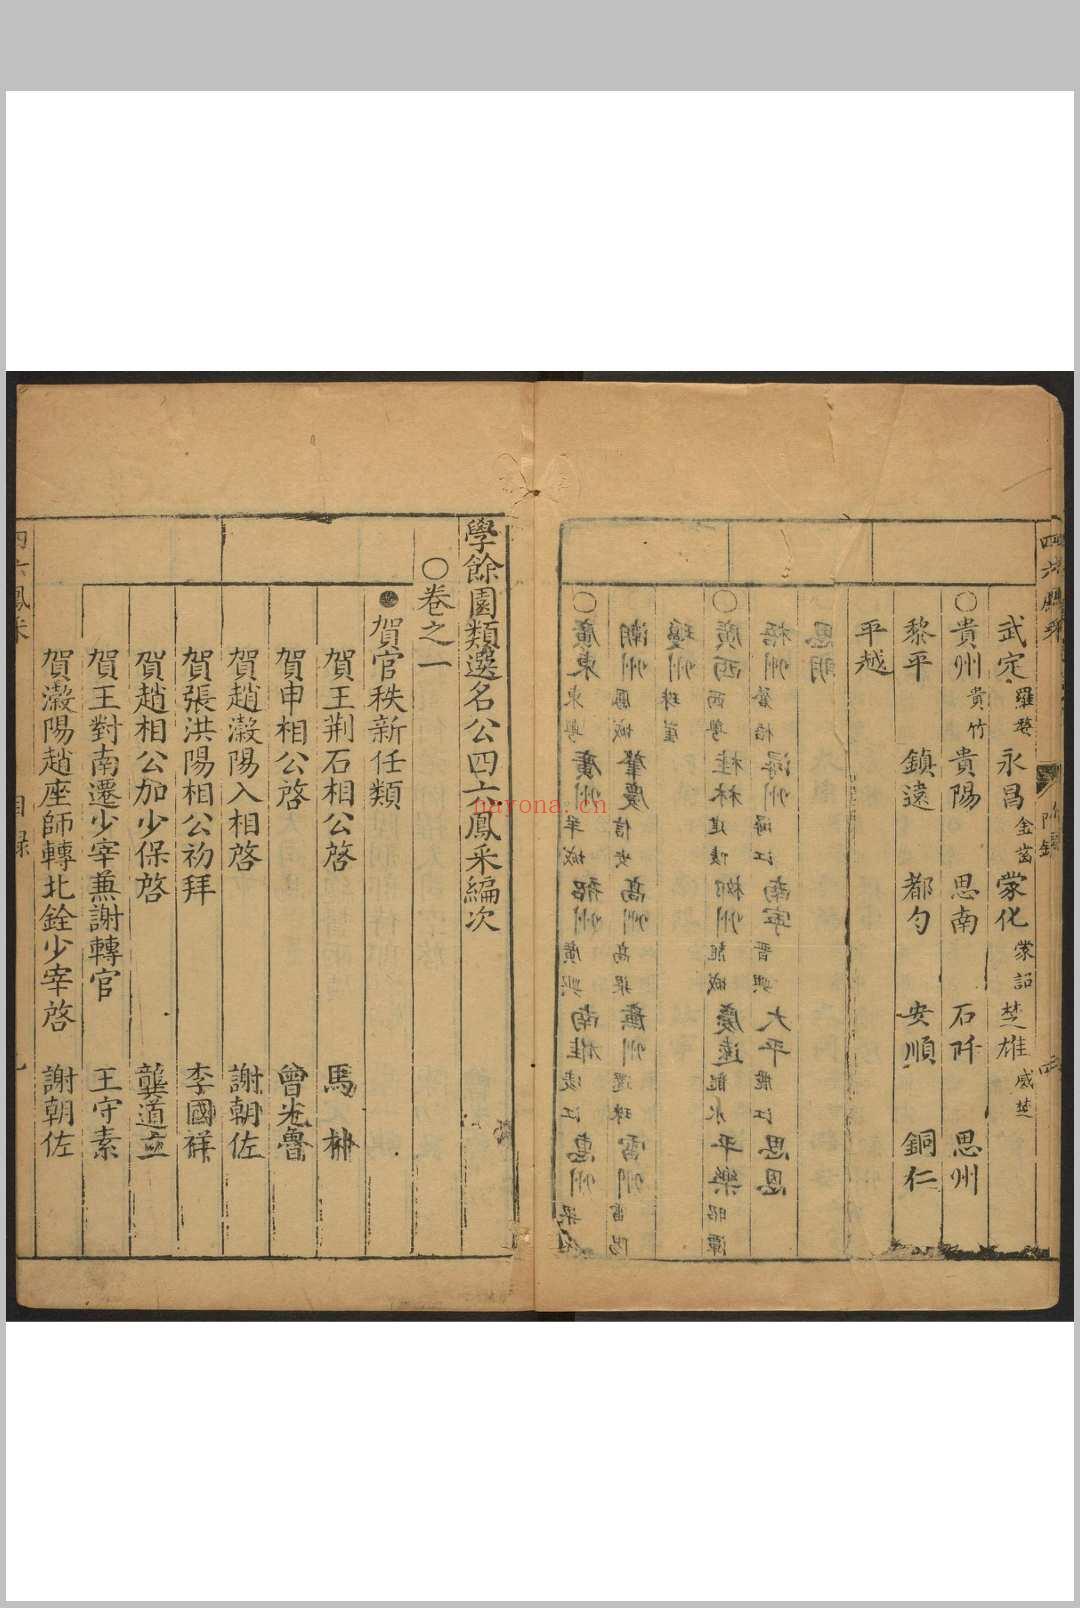 武定 羅婺 永昌 金齒 蒙化 蒙詔 楚雄 威楚
○貴州 貴竹 貴陽 思南 石阡 思州
黎平 鎮遠 都勻 安順 銅仁
平越
思明
梧州 蒼梧 潯州 潯江 南寧 晋興 太平 麗江 思恩
○廣西 西粵 桂林 建陵 柳州 龍城 慶遠 龍水 平樂 昭潭
瓊州 珠崖
潮州 鳳城 肇慶 信安 高州 高涼 廉州 還珠 雷州 雷陽
○廣東 東粵 廣州 羊城 韶州 廣興 南雄 凌江 惠州
學餘園類選名公四六鳳采編次
○卷之一
賀官秩新任類
賀王荆石相公啓 馬
賀申相公啓
賀趙瀫陽入相啓 謝朝佐
賀張洪陽相公初拜 李國祥
賀趙相公加少保啓 龔道立
賀王對南遷少宰兼謝轉官 王守素
賀瀫陽趙座師轉北銓少宰啓 謝朝佐
四六鳳采 目錄
nayona.cn